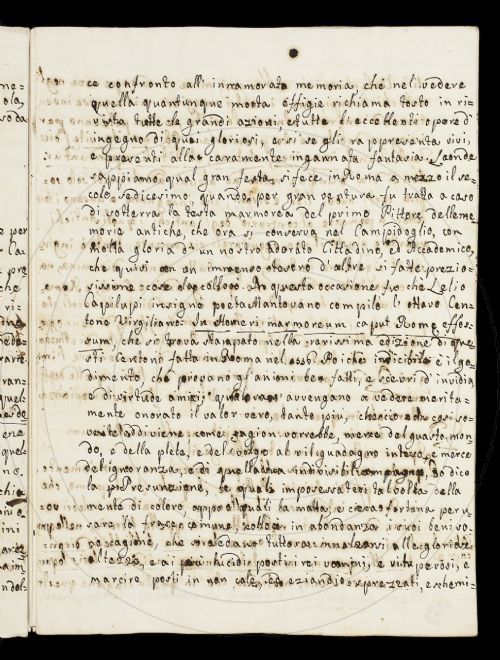 ce confronto all'innamorata memoria, che nel vedere
quella quantunque morta effigie richiama tosto in ri=
vista tutte le grandi azioni, e tutte l'eccellenti opere d'
ingegno di quei gloriosi, e sì se gli rappresenta vivi,
e presenti alla caramente ingannata fantasia. Laonde
sappiamo qual gran festa si fece in Roma a mezzo il se=
colo sedicesimo, quando per gran ventura fu tratta a caso
di sotterra la testa marmorea del primo Pittore delle me
morie antiche, che ora si conserva nel Campidoglio, con
molta gloria d'un nostro adorato Cittadino, ed Accademico,
che quivi con un immenso tesoro d'altre sì fatte prezio=
sissime cose la collocò. In questa occasione fu che Lelio
Capilupi insigne poeta Mantovano compilò l'ottavo Cen=
tone Virgiliano: In Homeri marmoreum caput Romae effos=
sum, che si trova stampato nella rarissima edizione di que=
sti Centoni fatta in Roma nel Poichè indicibile è il go=
dimento, che provano gl'animi ben fatti, e scevri d'invidia,
e di virtude amici, qualora avvengano a vedere merita=
mente onorato il valor vero, tanto più, che ciò
addiviene come ragion vorrebbe, mercè del guasto mon
do, e della plebe, e del volgo al vil guadagno inteso, e mercè
dell'ignoranza, e di quella indivisibil compagna, io dico
la Presunzione, le quali impossessatesi talvolta della
mente di coloro, appo i quali la matta, e cieca fortuna per u
sare la frase comune, colloca in abondanza i suoi beni, so=
no cagione, che si vedano tuttora innalzarsi alle gloriose
altezze, e ai più lucidi posti i rei uomini, e vituperosi, e
marcire posti in non cale, ed eziandio sprezzati, e scherni=